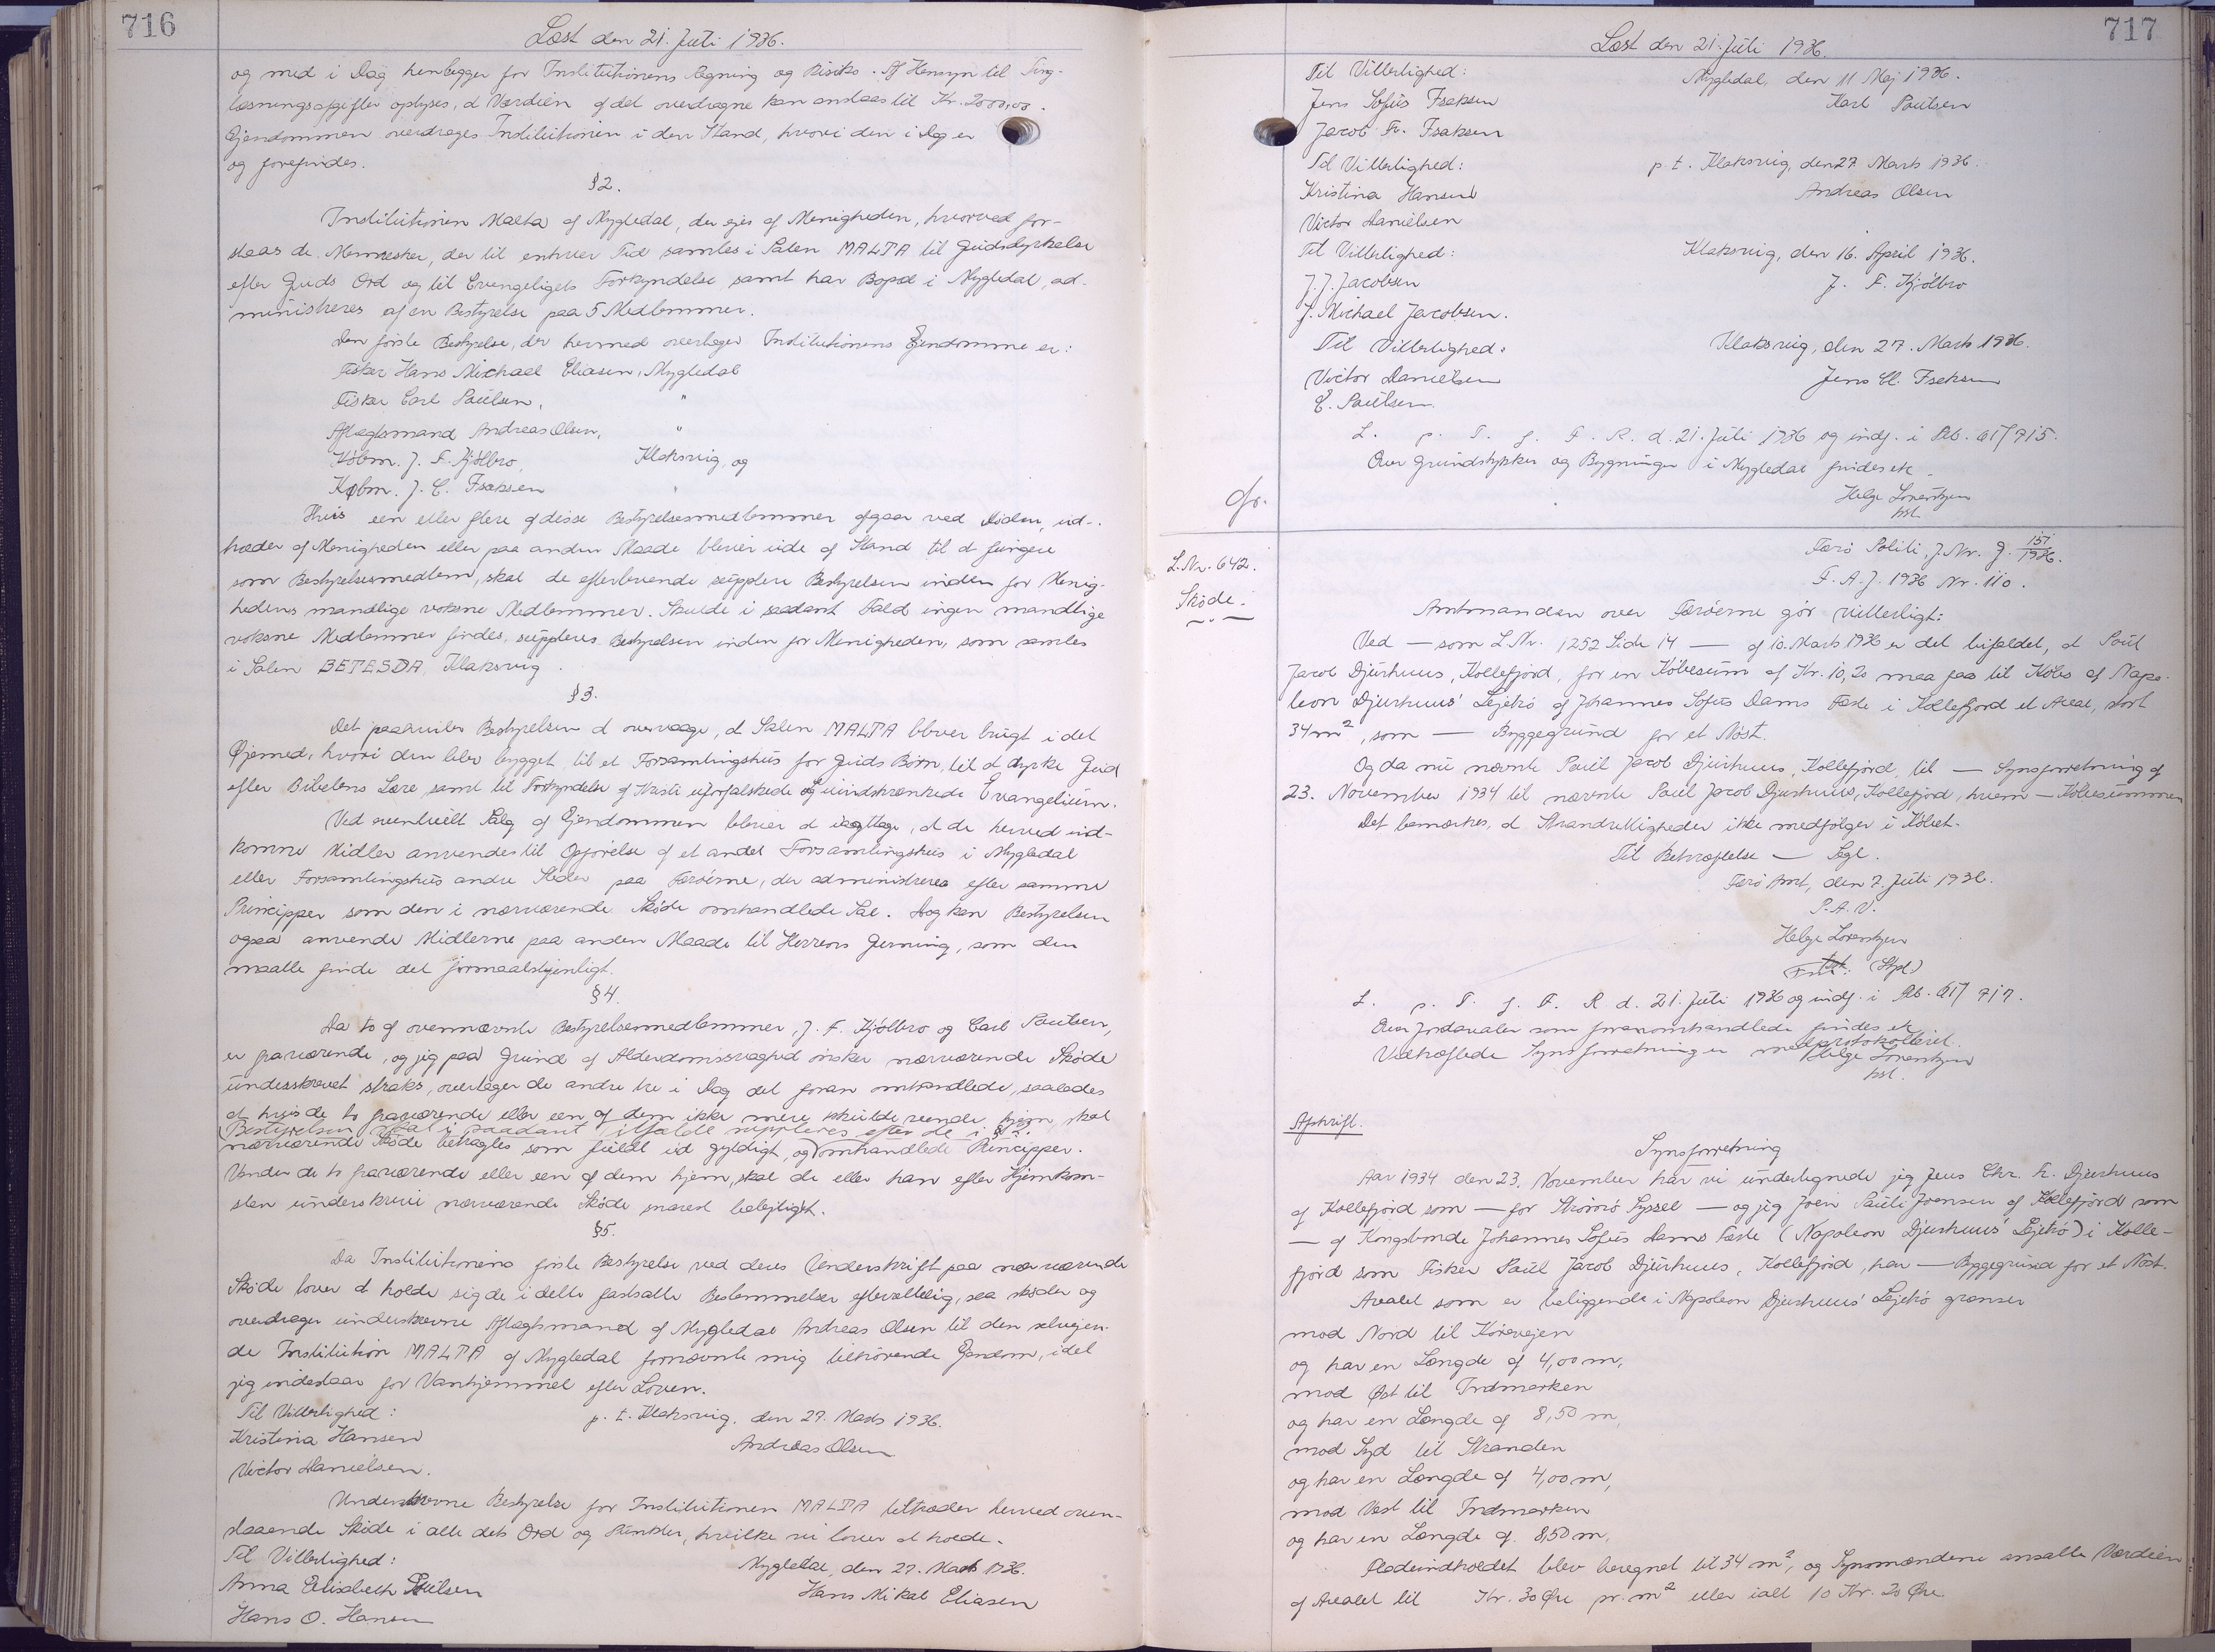 716
Læst den 21. Juli 1936.
og med i Dag henligger for Institutionens Regning og Risiko. Af Hensyn til Ting-
læsningsafgifter oplyses, at Værdien af det overdragne kan anslaas til Kr. 2000,00.
Ejendommen overdrages Institutionen i den Stand, hvori den i Dag er
og forefindes.
§2.
Institutionen Malta af Mygledal, der ejes af Menigheden, hvorved for-
staas de Mennesker, der til enhver Tid samles i Salen MALTA til Gudsdyrkelse
efter Guds Ord og til Evangeliets Forkyndelse samt har Bopæl i Mygledal, ad-
ministreres af en Bestyrelse paa 5 Medlemmer.
Den første Bestyrelse, der hermed overtager Institutionens Ejendomme er:
Fisker Hans Michael Eliasen, Mygledal
Fisker Carl Poulsen, "
Aflægtsmand Andreas Olsen, "
Købm. J. F. Kjölbro, Klaksvig, og
Købm. J. C. Isaksen "
Hvis een eller flere af disse Bestyrelsesmedlemmer afgaar ved Døden, ud-
træder af Menigheden eller paa anden Maade bliver ude af Stand til at fungere
som Bestyrelsesmedlem, skal de efterlevende supplere Bestyrelsen inden for Menig-
hedens mandlige voksne Medlemmer. Skulde i saadant Fald ingen mandlige
voksne Medlemmer findes, suppleres Bestyrelsen inden for Menigheden, som samles
i Salen BETESDA, Klaksvig.
§3.
Det paahviler Bestyrelsen at overvaage, at Salen MALTA bliver brugt i det
Øjemed, hvori den blev bygget til et Forsamlingshus for Guds Børn, til at dyrke Gud
efter Bibelens Lære samt til Forkyndelse af Kristi uforfalskede og uindskrænkede Evangelium.
Ved eventuelt Salg af Ejendommen bliver at iagttage, at de herved ind-
komne Midler anvendes til Opførelse af et andet Forsamlingshus i Mygledal
eller Forsamlingshus andre Steder paa Færöerne, der administreres efter samme
Principper som den i nærværende Skøde omhandlede Sal. Dog kan Bestyrelsen
ogsaa anvende Midlerne paa anden Maade til Herrens Gerning, som den
maatte finde det formaalstjenligt.
§4.
Da to af ovennævnte Bestyrelsesmedlemmer, J. F. Kjölbro og Carl Poulsen,
er fraværende, og jeg paa Grund af Alderdomssvaghed ønsker nærværende Skøde
underskrevet straks, overtager de andre tre i Dag det foran omhandlede, saaledes
at hvis de to fraværende eller een af dem ikke mere skulde vende hjem, skal
Bestyrelsen skal i saadant Tilfælde suppleres efter de i §2.
nærværende Skøde betragtes som fuldt ud gyldigt, og omhandlede Principper.
Vender de to fraværende eller een af dem hjem, skal de eller han efter Hjemkom-
sten underskrive nærværende Skøde snarest belejligt.
§5.
Da Institutionens første Bestyrelse ved deres Underskrift paa nærværende
Skøde lover at holde sig de i dette fastsatte Bestemmelser efterrettelig, saa skøder og
overdrager underskrevne Aflægtsmand af Mygledal Andreas Olsen til den selvejen-
de Institution MALTA af Mygledal fornævnte mig tilhørende Ejendom, idet
jeg indestaar for Vanhjemmel efter Loven.
Til Vitterlighed: p. t. Klaksvig, den 27. Marts 1936.
Kristina Hansen Andreas Olsen
Victor Danielsen.
Underskrevne Bestyrelse for Institutionen MALTA tiltræder herved oven-
staaende Skøde i alle dets Ord og Punkter, hvilke vi lover at holde.
Til Vitterlighed: Mygledal, den 27. Marts 1936.
Anna Elisabeth Poulsen Hans Mikal Eliasen
Hans O. Hansen
717
Læst den 21. Juli 1936.
Til Vitterlighed: Mygledal, den 11 Maj 1936.
Jens Sofus Isaksen Karl Poulsen
Jacob Fr. Isaksen
Til Vitterlighed: p. t. Klaksvig, den 27. Marts 1936.
Kristina Hansen Andreas Olsen
Victor Danielsen
Til Vitterlighed: Klaksvig, den 16. April 1936.
J. J. Jacobsen J. F. Kjölbro
J. Michael Jacobsen.
Til Vitterlighed: Klaksvig, den 27. Marts 1936.
Victor Danielsen Jens Cl. Isaksen
E. Poulsen.
L. p. T. f. F. R. d. 21. Juli 1936 og indf. i Pb. 617 715.
Over Grundstykker og Bygninger i Mygledal findes ek
Helge Lorentzen
hst.
Gfr.
L. Nr. 642.
Skøde.
Færö Politi, J. Nr. J. 151/1936.
F. A. J. 1936 Nr. 110.
Amtmanden over Færöerne gör vitterligt:
Ved — som L. Nr. 1252 Side 14 — af 10. Marts 1936 er det bifaldet, at Poul
Jacob Djurhuus, Kollefjord, for en Købesum af Kr. 10,20 maa faa til Købs af Napo-
leon Djurhuus' Lejetrö af Johannes Sofus Dams Fæste i Kollefjord et Areal, stort
34 m², som — Byggegrund for et Nøst.
Og da nu nævnte Poul Jacob Djurhuus, Kollefjord, til — Synsforretning af
23. November 1934 til nævnte Poul Jacob Djurhuus, Kollefjord, hvem — Købesummen
Det bemærkes, at Strandrettigheder ikke medfölger i Købet.
Til Bekræftelse — Segl.
Færö Amt, den 7. Juli 1936.
P. A. V.
Helge Lorentzen
Fm. hst. (Stpl)
L. p. T. f. F. R. d. 21. Juli 1936 og indf. i Pb. 617 717.
Over Jordarealer som foranomhandlede findes ek
Vedhæftede Synsforretning er medprotokolleret.
Helge Lorentzen
hst.
Afskrift.
Synsforretning
Aar 1934 den 23. November har vi undertegnede jeg Jens Chr. Fr. Djurhuus
af Kollefjord som — for Strömö Syssel — og jeg Joen Pauli Joensen af Kollefjord som
— af Kongsbonde Johannes Sofus Dams Fæste (Napoleon Djurhuus' Lejetrö) i Kolle-
fjord som Fisker Poul Jacob Djurhuus, Kollefjord, har — Byggegrund for et Nöst.
Arealet som er beliggende i Napoleon Djurhuus' Lejetrö grænser
mod Nord til Kørevejen
og har en Længde af 4,00 m,
mod Øst til Indmarken
og har en Længde af 8,50 m,
mod Syd til Stranden
og har en Længde af 4,00 m,
mod Vest til Indmarken
og har en Længde af 8,50 m.
Fladeindholdet blev beregnet til 34 m², og Synsmændene ansatte Værdien
af Arealet til Kr. 30 Øre pr. m² eller ialt 10 Kr. 20 Øre